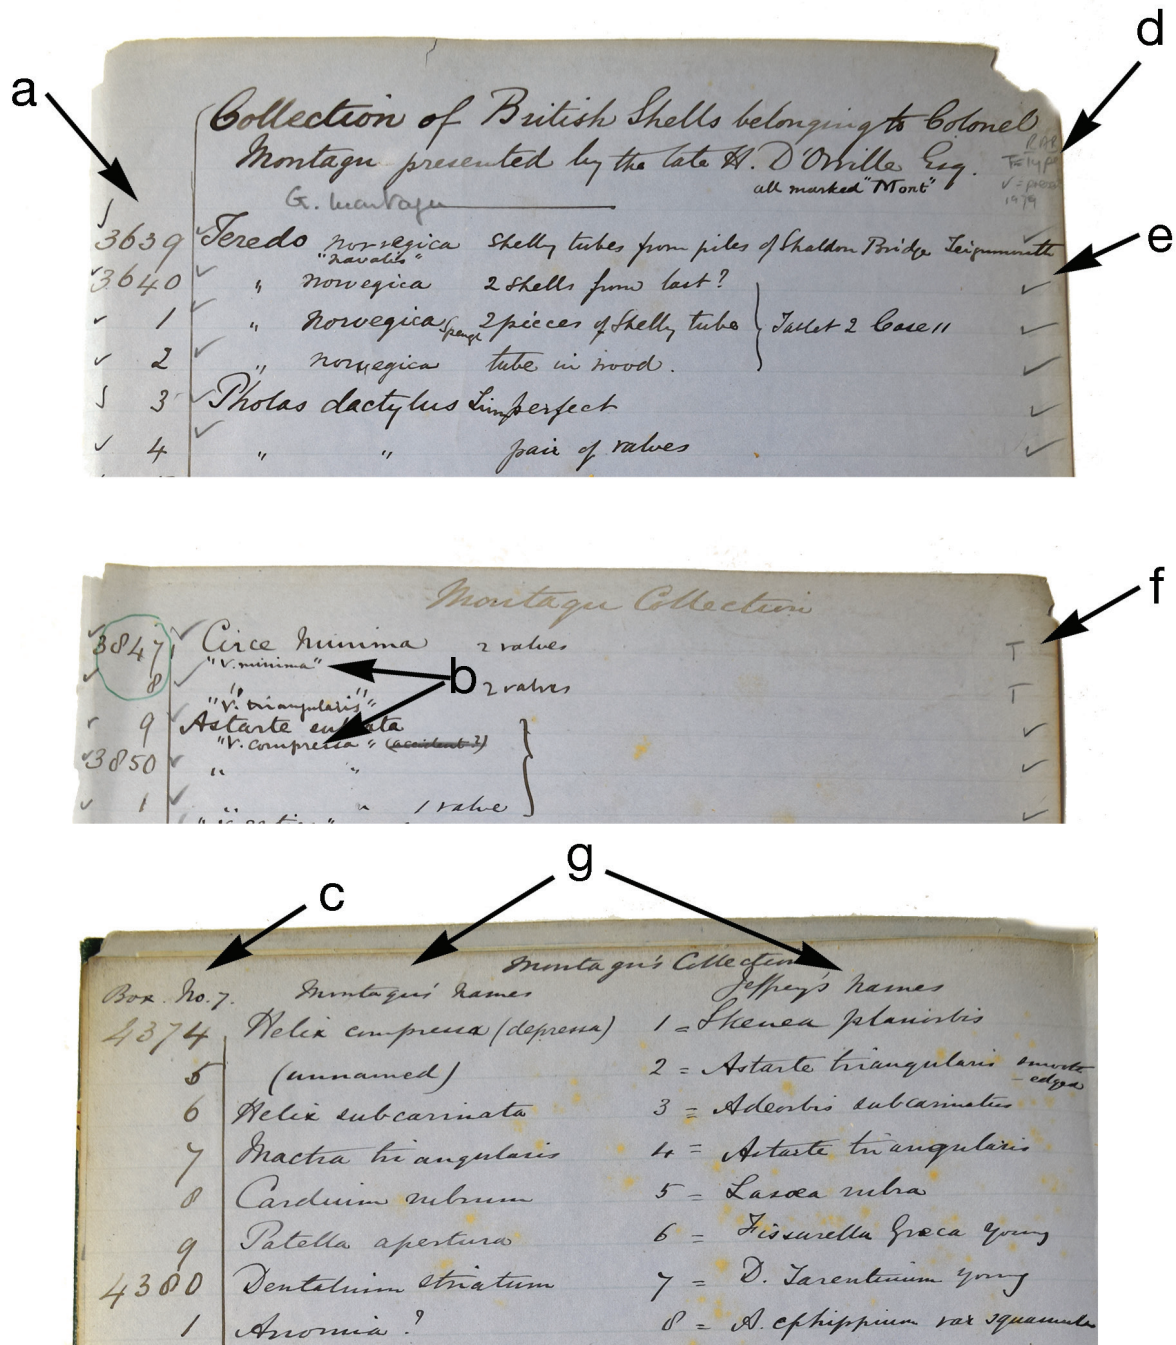 a
d
Collection of British Shells belonging to Colonel
Montagu presented by the late H. D'Orville Esq.
all marked "Mont"
RAP
T=type
1979
G. Montagu
3639 Teredo norvegica Shelly tubes from piles of Shaldon Bridge Teignmouth
"navalis"
e
3640 " norvegica 2 Shells from last?
1 " norvegica Speng 2 pieces of Shelly tube } Tablet 2 Case 11
2 " norvegica tube in wood.
3 Pholas dactylus Imperfect
4 " " pair of valves
Montagu Collection
f
3847 Circe minima 2 valves T
"V. minima"
b
8 " 2 valves T
"V. triangularis"
9 Astarte sulcata
"V. compressa" (accident?)
3850 " "
1 " " 1 valve
g
c
Montagu's Collection
Box No. 7. Montagu's Names Jeffrey's Names
4374 Helix compressa (depressa) 1 = Skenea planorbis
5 (unnamed) 2 = Astarte triangularis smooth
- edged
6 Helix subcarinata 3 = Adeorbis subcarinatus
7 Mactra triangularis 4 = Astarte triangularis
8 Cardium rubrum 5 = Lasaea rubra
9 Patella apertura 6 = Fissurella Graeca young
4380 Dentalium striatum 7 = D. Tarentinum young
1 Anomia ? 8 = A. ephippium var squamula